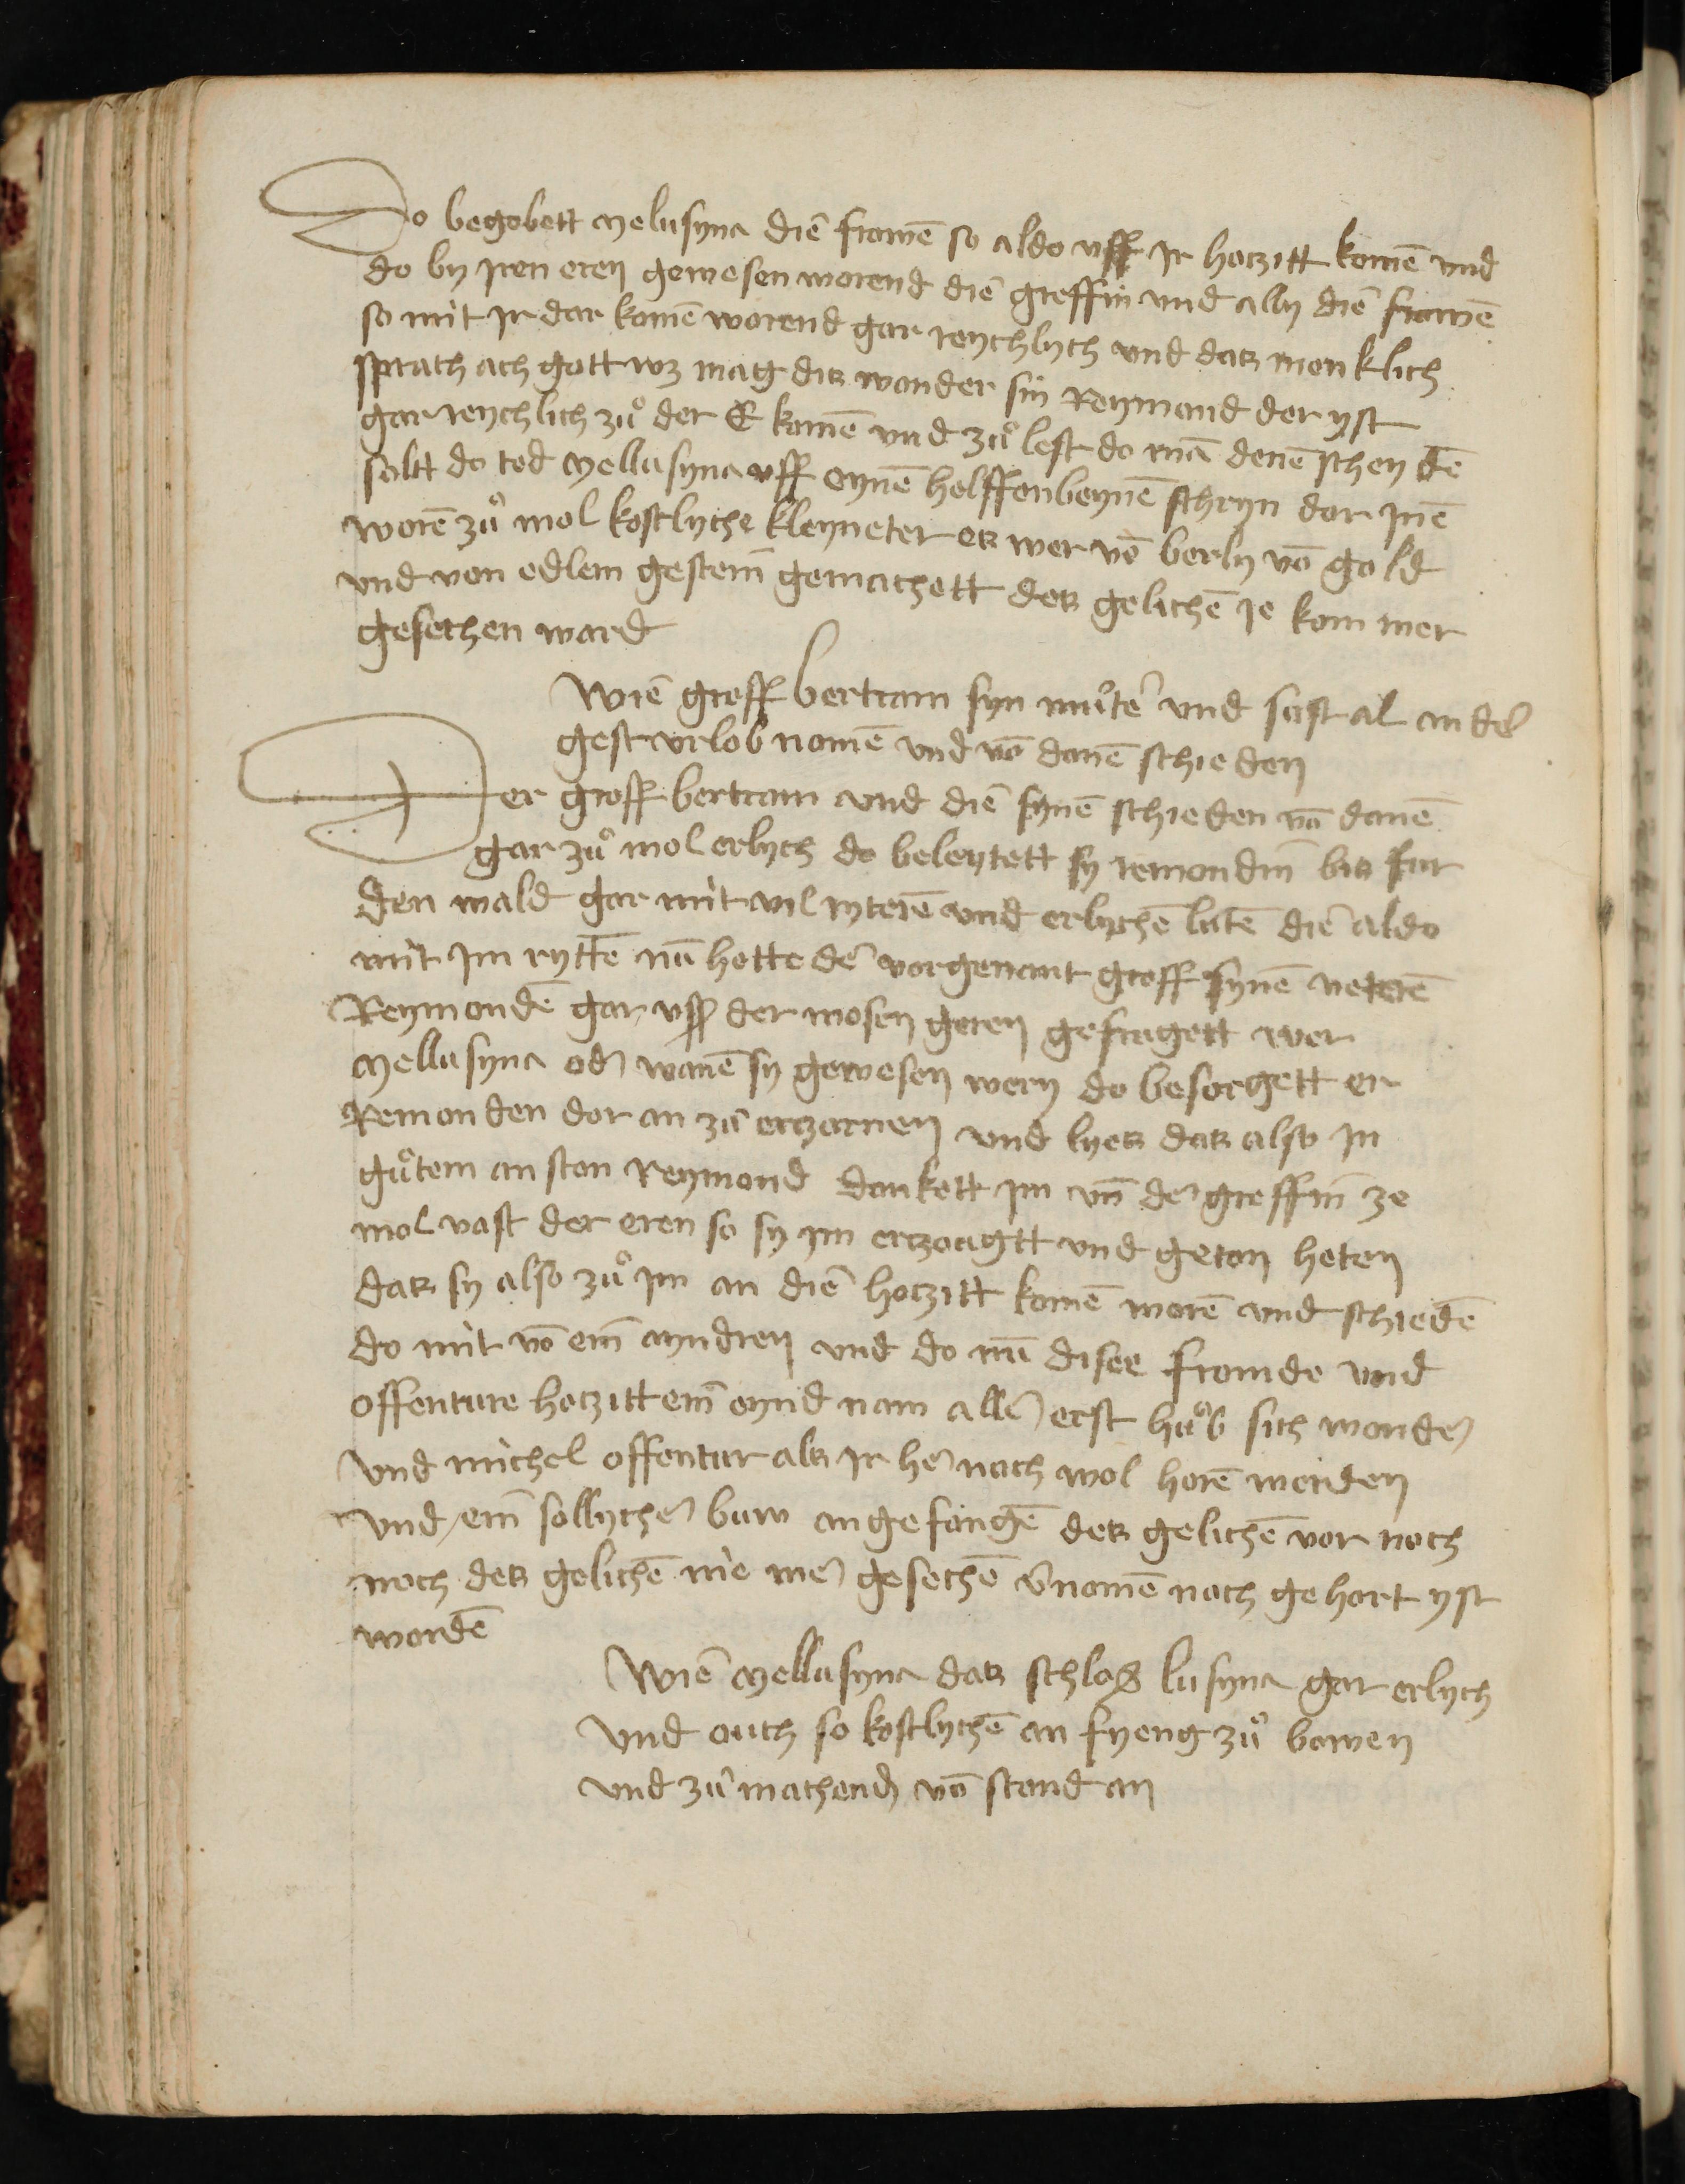 Do begobett melusyna die frowē so aldo vff Ir hoczitt komē vnd
do by jren eren gewesen worend die greffin vnd ally die frowē
so mit Ir dar komē worend gar reychlych vnd daß monklich
sprach ach gott wz mag diß wonder sin Reymond der yst
gar reychlich zuͦ der E komē vnd zuͦ lest do mā denē schey dē
soltt do tod mellusyna vff eynē helffenbeynē schryn dor jnē
worē zuͦ mol kostlyche kleyneter eß wer vō berly vō gold
vnd von edlem gestein gemachett deß gelichē ie kom mer
gesechen ward
Wie groff bertram syn muͦter vnd sust al ander
gest vrlob nomē vnd vō donē schieden
Der groff bertram vnd die synē schieden vō donē
gar zuͦ mol erlych do beleytett sy remondin biß fur
den wald gar mit vil ryterē vnd erlychē lutē die aldo
mit Im ryttē nū hette der vorgenant groff synē veterē
Reymondē gar vß der mosen geren gefragett wer
mellusyna oder wanē sy gewesen wery do besorgett er
Remonden dor an zuͦ erczornen vnd lyeß daß also in
guͦtem an ston Reymond dankett im vn̄ der greffin ze
mol vast der eren so sy im erczougtt vnd geton heten
daß sy also zuͦ im an die hoczitt komē worē vnd schiedē
do mit vō ein ayndren vnd do nū disee fromde vnd
offenture hoczitt ein eynd nam aller erst huͦb sich wonder
vnd michel offentur alß ir her nach wol horē werden
vnd ein sollycher buw angefangē deß gelichē vor noch
noch deß gelichē nie mer gesechē v̄nomē noch gehort yst
wordē
Wie mellusyna daß schloß lusyna gar erlych
vnd ouch so kostlychē an fyeng zuͦ bowen
vnd zuͦ machend vō stond an